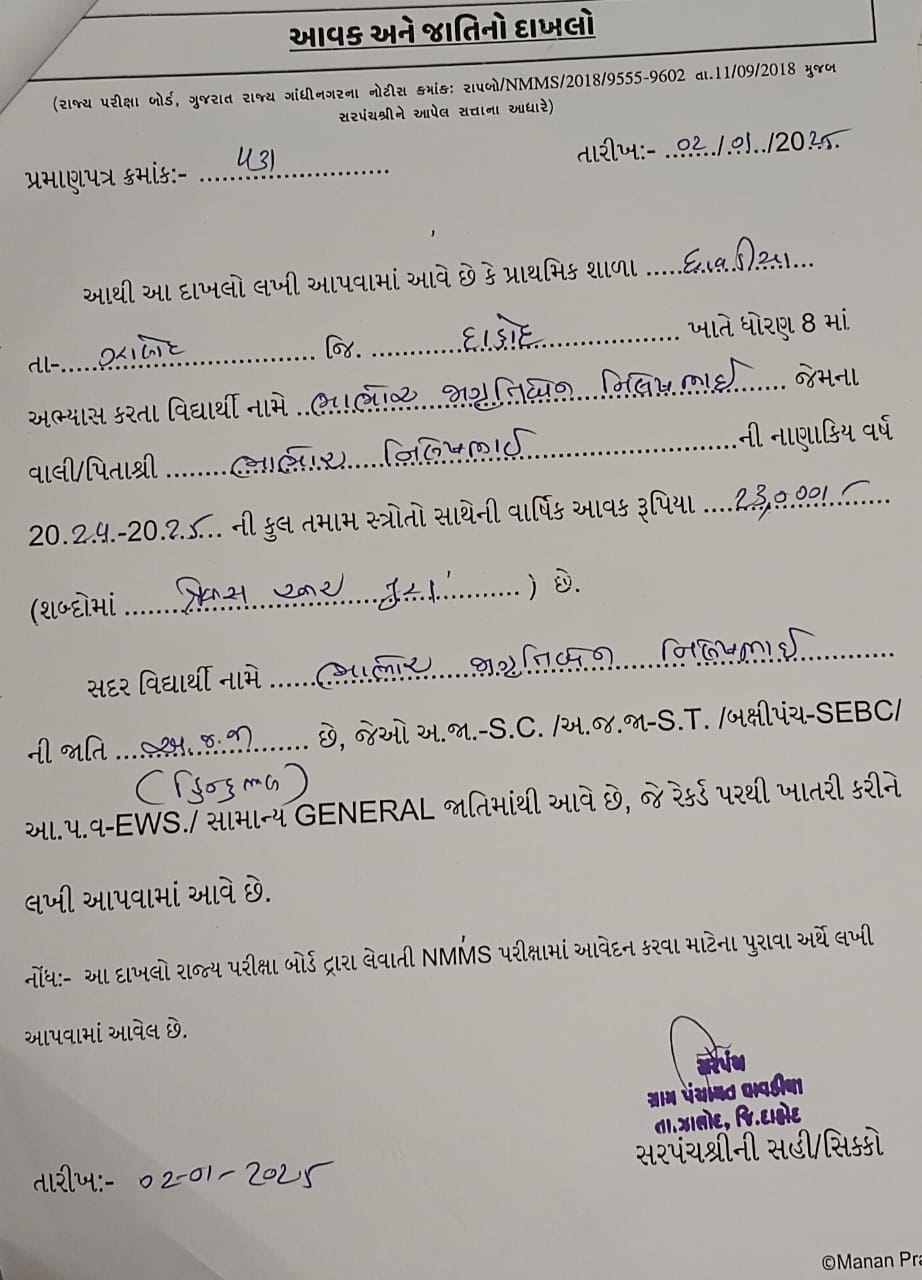 આવક અને જાતિનો દાખલો
(રાજ્ય પરીક્ષા બોર્ડ, ગુજરાત રાજ્ય ગાંધીનગરના નોટીસ ક્રમાંક: રાપબો/NMMS/2018/9555-9602 તા.11/09/2018 મુજબ
સરપંચશ્રીને આપેલ સત્તાના આધારે)
પ્રમાણપત્ર ક્રમાંક:- ૫૩૧
તારીખ:- ૦૨/૦૧/2025
આથી આ દાખલો લખી આપવામાં આવે છે કે પ્રાથમિક શાળા ધાવડીયા
તા- ઝાલોદ જિ. દાહોદ ખાતે ધોરણ 8 માં
અભ્યાસ કરતા વિદ્યાર્થી નામે ભાભોર જાગૃતિબેન નિલેષભાઈ જેમના
વાલી/પિતાશ્રી ભાભોર નિલેષભાઈ ની નાણાકિય વર્ષ
20.24.-20.25... ની કુલ તમામ સ્ત્રોતો સાથેની વાર્ષિક આવક રૂપિયા 23,000/-
(શબ્દોમાં હજાર પુરા) છે.
સદર વિદ્યાર્થી નામે ભાભોર જાગૃતિબેન નિલેષભાઈ
ની જાતિ અ.જ.જા છે, જેઓ અ.જા.-S.C. /અ.જ.જા-S.T. /બક્ષીપંચ-SEBC/
(હિન્દુ ભીલ)
આ.પ.વ-EWS./ સામાન્ય GENERAL જાતિમાંથી આવે છે, જે રેકર્ડ પરથી ખાતરી કરીને
લખી આપવામાં આવે છે.
નોંધ:- આ દાખલો રાજ્ય પરીક્ષા બોર્ડ દ્વારા લેવાતી NMMS પરીક્ષામાં આવેદન કરવા માટેના પુરાવા અર્થે લખી
આપવામાં આવેલ છે.
સરપંચ
ગ્રામ પંચાયત ધાવડીયા
તા.ઝાલોદ, જિ.દાહોદ
સરપંચશ્રીની સહી/સિક્કો
તારીખ:- 02-01-2025
©Manan Pra